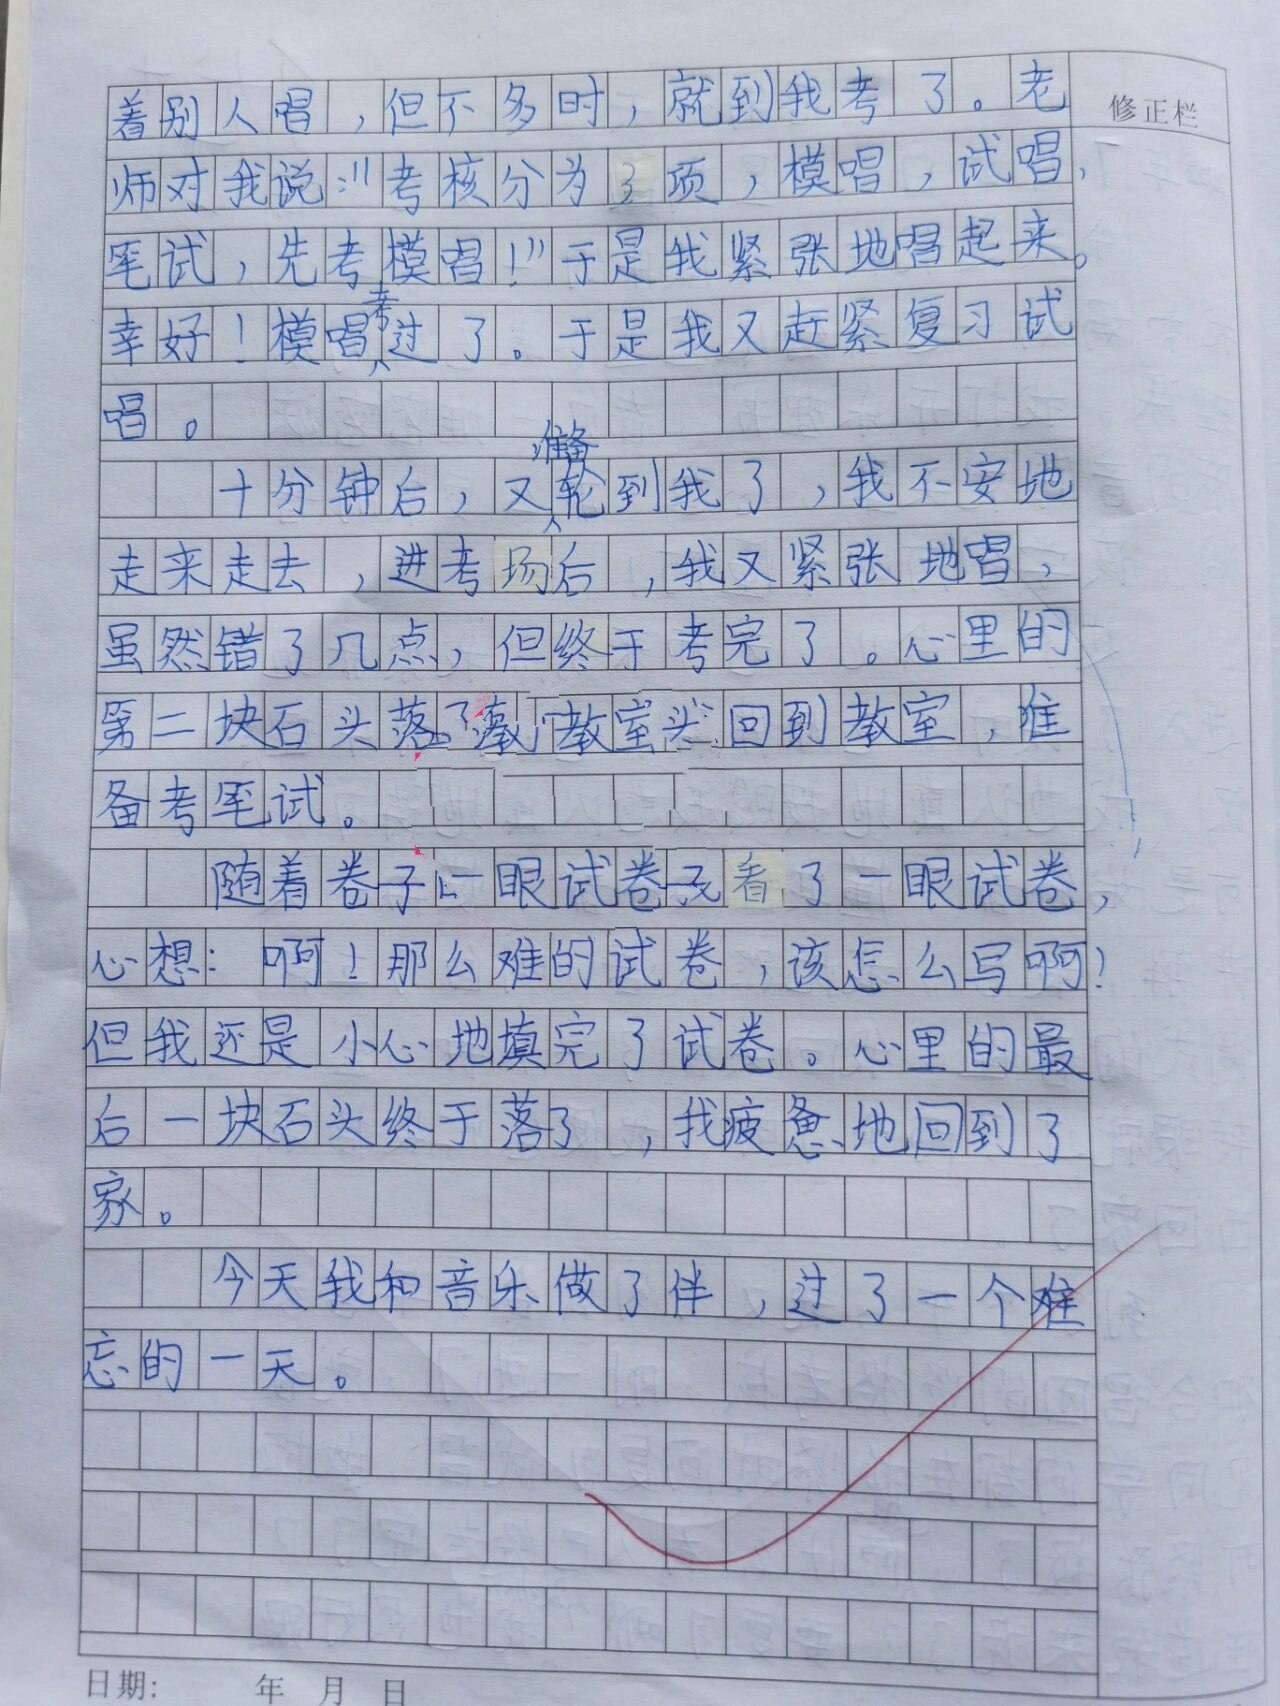 着别人唱，但不多时，就到我考了。老
修正栏
师对我说：“考核分为3项，模唱，试唱，
笔试，先考模唱！”于是我紧张地唱起来。
幸好！模唱考过了。于是我又赶紧复习试
唱。
十分钟后，又准备轮到我了，我不安地
走来走去，进考场后，我又紧张地唱，
虽然错了几点，但终于考完了。心里的
第二块石头落了 教室 回到教室，准
备考笔试。
随着卷子 一眼试卷 看了一眼试卷，
心想：啊！那么难的试卷，该怎么写啊！
但我还是小心地填完了试卷。心里的最
后一块石头终于落了，我疲惫地回到了
家。
今天我和音乐做了伴，过了一个难
忘的一天。
日期： 年 月 日